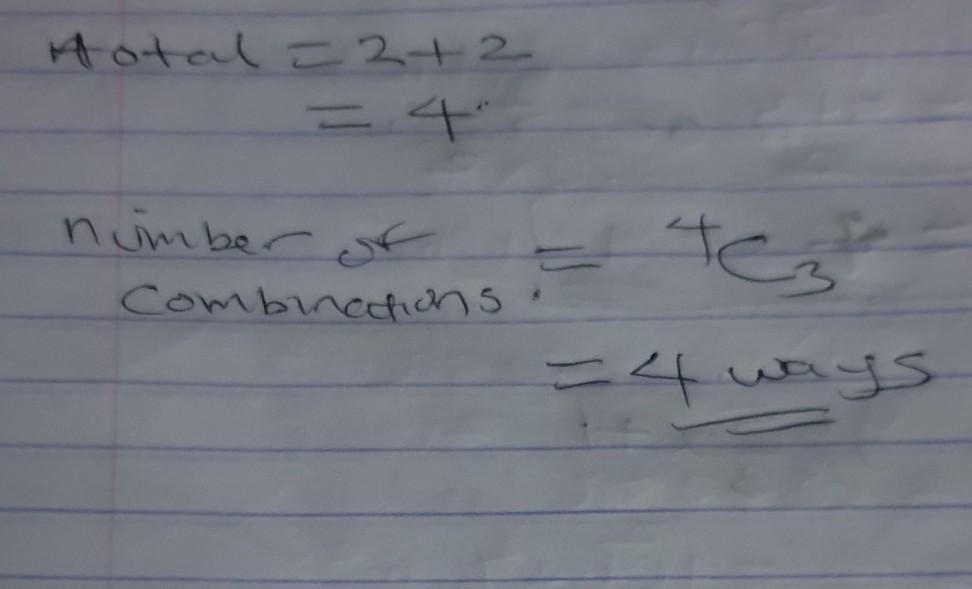 total = 2+2
= 4
number of = ⁴C₃
combinations.
= 4 ways